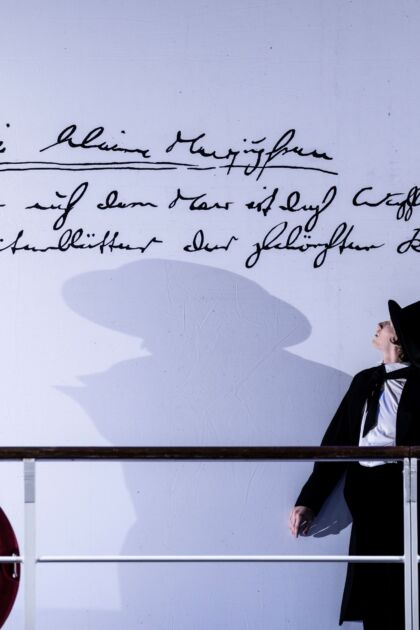 ie kleine Meerjungfrau
auf dem Meer ist das Wass
tenblätter der schönsten K